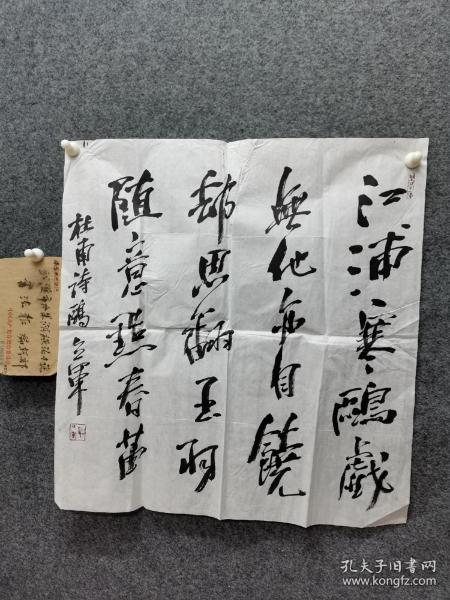 江浦寒鷗戲
無他亦自饒
却思翻玉羽
随意點春苗
杜甫诗鷗 立軍
孔夫子旧书网
www.kongfz.com